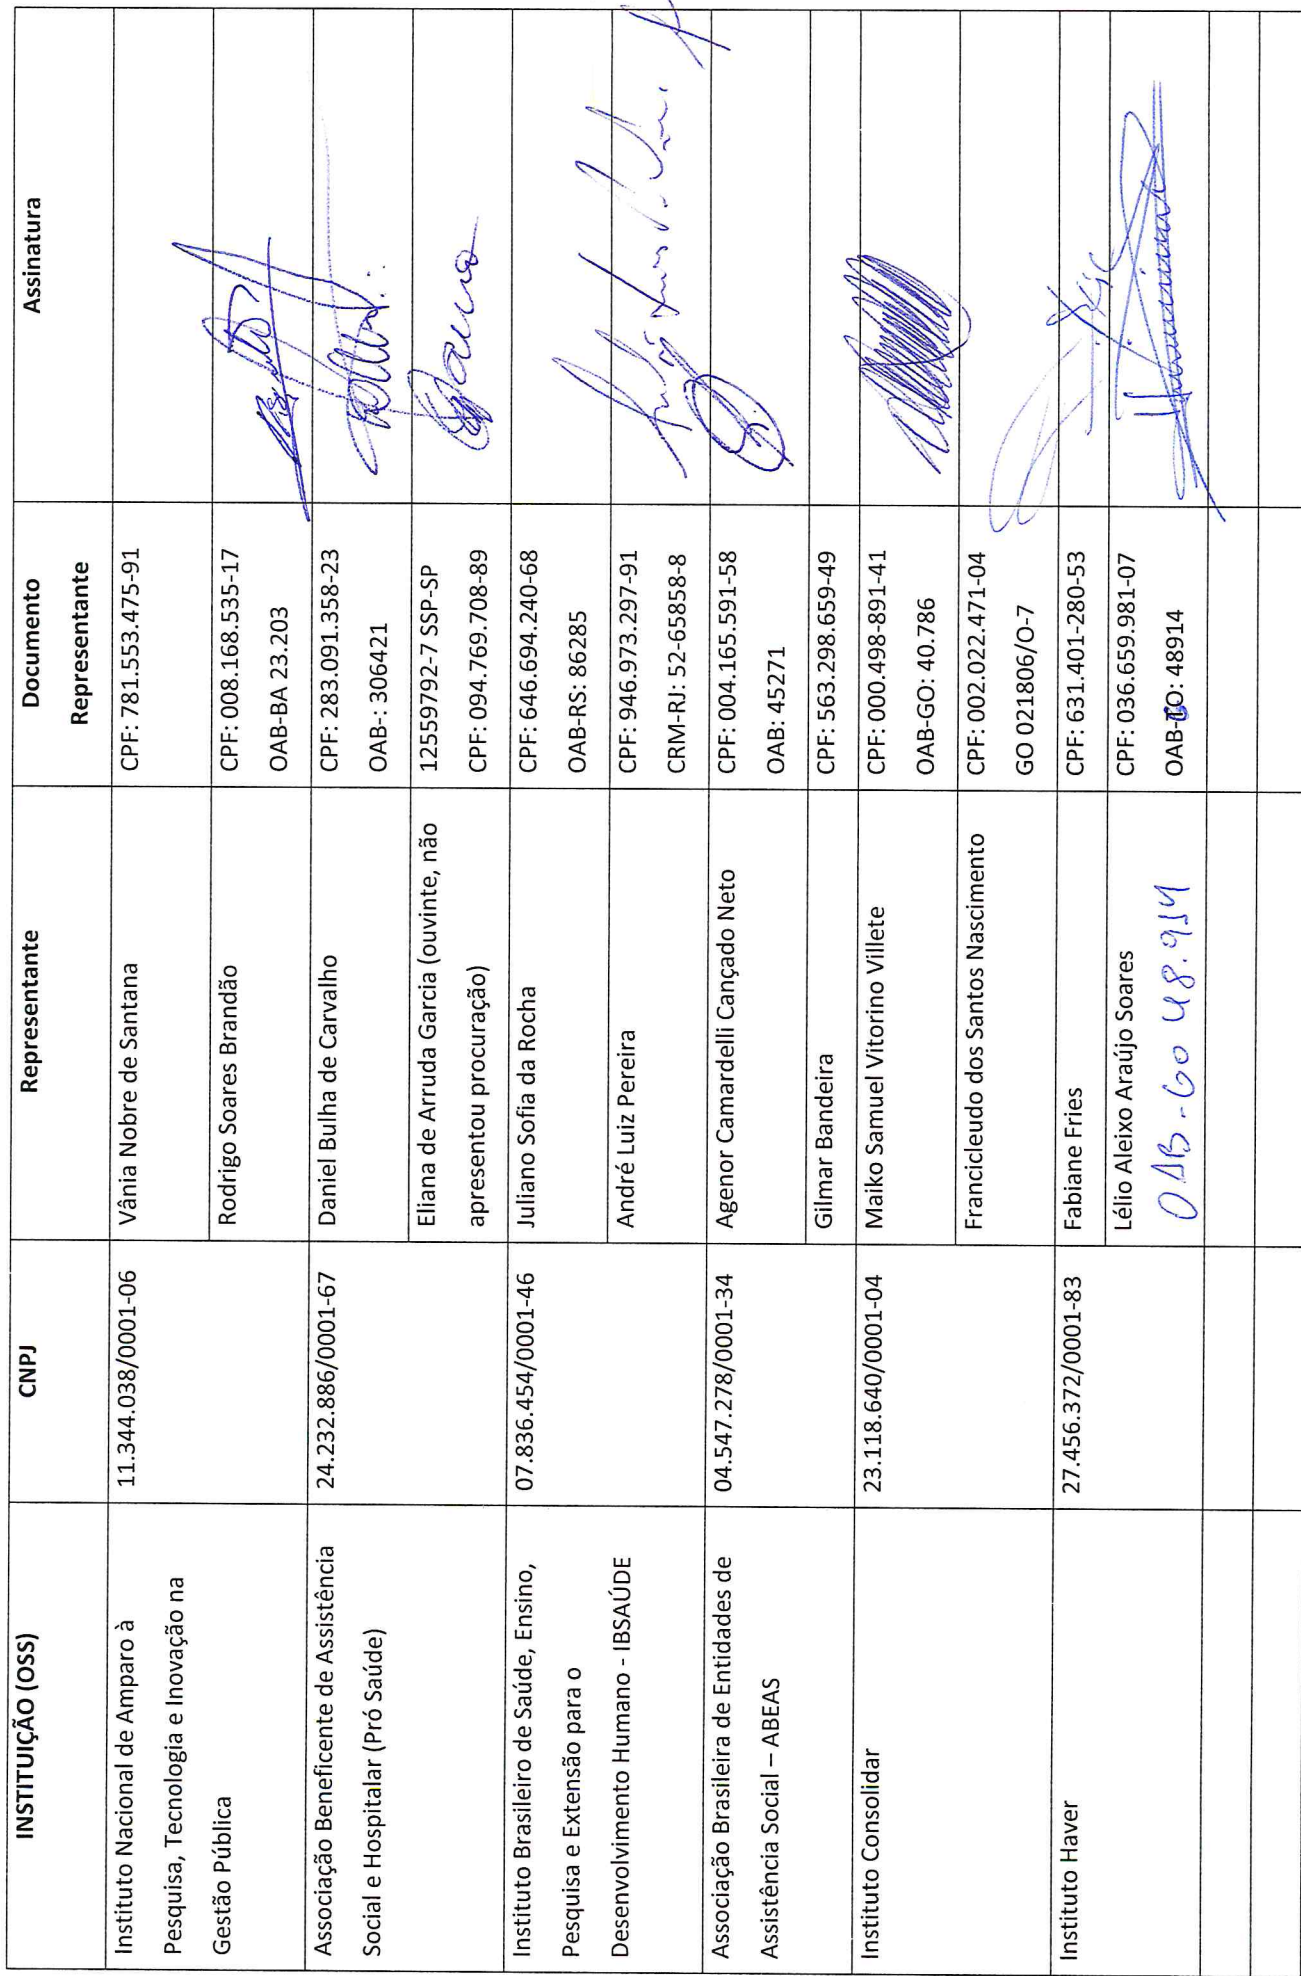 INSTITUIÇÃO (OSS)
CNPJ
Representante
Documento
Representante
Assinatura
Instituto Nacional de Amparo à
Pesquisa, Tecnologia e Inovação na
Gestão Pública
11.344.038/0001-06
Vânia Nobre de Santana
CPF: 781.553.475-91
Rodrigo Soares Brandão
CPF: 008.168.535-17
OAB-BA 23.203
Associação Beneficente de Assistência
Social e Hospitalar (Pró Saúde)
24.232.886/0001-67
Daniel Bulha de Carvalho
CPF: 283.091.358-23
OAB-: 306421
Eliana de Arruda Garcia (ouvinte, não
apresentou procuração)
12559792-7 SSP-SP
CPF: 094.769.708-89
Instituto Brasileiro de Saúde, Ensino,
Pesquisa e Extensão para o
Desenvolvimento Humano - IBSAÚDE
07.836.454/0001-46
Juliano Sofia da Rocha
CPF: 646.694.240-68
OAB-RS: 86285
André Luiz Pereira
CPF: 946.973.297-91
CRM-RJ: 52-65858-8
Associação Brasileira de Entidades de
Assistência Social – ABEAS
04.547.278/0001-34
Agenor Camardelli Cançado Neto
CPF: 004.165.591-58
OAB: 45271
Gilmar Bandeira
CPF: 563.298.659-49
Instituto Consolidar
23.118.640/0001-04
Maiko Samuel Vitorino Villete
CPF: 000.498-891-41
OAB-GO: 40.786
Francicleudo dos Santos Nascimento
CPF: 002.022.471-04
GO 021806/O-7
Instituto Haver
27.456.372/0001-83
Fabiane Fries
CPF: 631.401-280-53
Lélio Aleixo Araújo Soares
OAB-GO 48.914
CPF: 036.659.981-07
OAB-GO: 48914